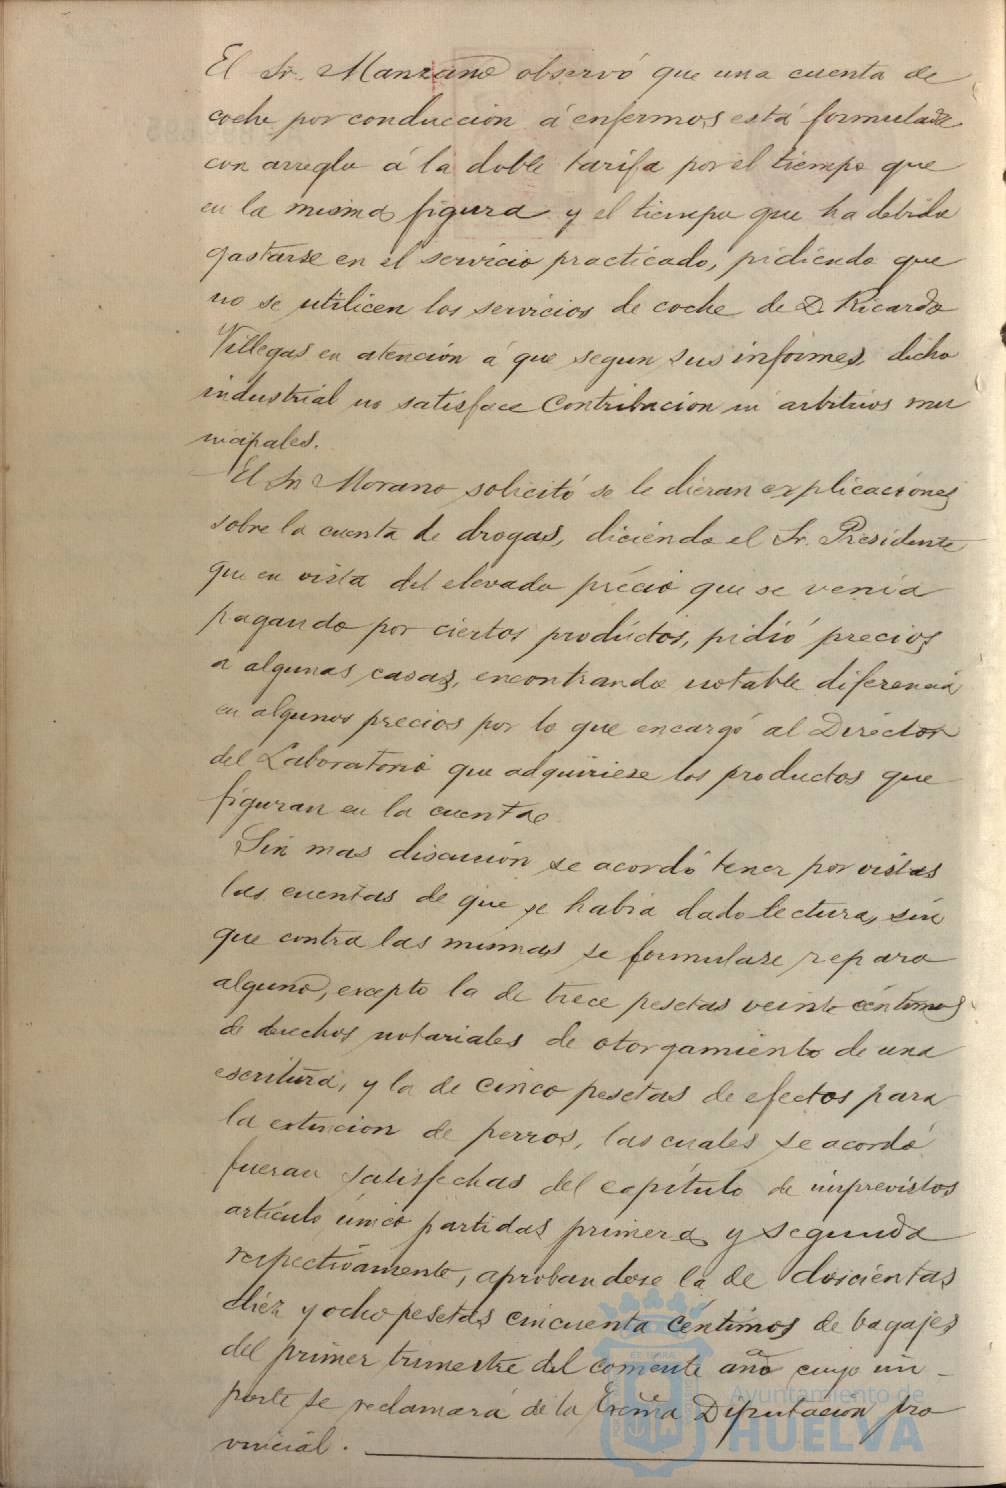 El Sr. Manzano observó que una cuenta de
coche por conducción á enfermos está formulada
con arreglo á la doble tarifa por el tiempo que
en la misma figura y el tiempo que ha debido
gastarse en el servicio practicado, pidiendo que
no se utilicen los servicios de coche de D. Ricardo
Villegas en atención á que segun sus informes, dicho
industrial no satisface contribucion ni arbitrios mu
nicipales.
El Sr Morano solicitó se le dieran explicaciónes
sobre la cuenta de drogas, diciendo el Sr. Presidente
que en vista del elevado précio que se venia
pagando por ciertos prodúctos, pidió precios
a algunas casas, encontrando notable diferencia
en algunos precios por lo que encargó al Diréctor
del Laboratorio que adquiriese los productos que
figuran en la cuenta
Sin mas discusión se acordó tener por vistas
las cuentas de que se habia dado lectura, sin
que contra las mismas se formulase reparo
alguno, excepto la de trece pesetas veinte céntimos
de derechos notariales de otorgamiento de una
escritura, y la de cinco pesetas de efectos para
la extincion de perros, las cuales se acordó
fueran satisfechas del capítulo de imprevistos
artículo único partidas primera y segunda
respectivamente, aprobandose la de doscientas
diez y ocho pesetas cincuenta céntimos de bagajes
del primer trimestre del corriente año cuyo im-
porte se reclamará de la Excma Diputacion pro
vincial.
Ayuntamiento de
HUELVA